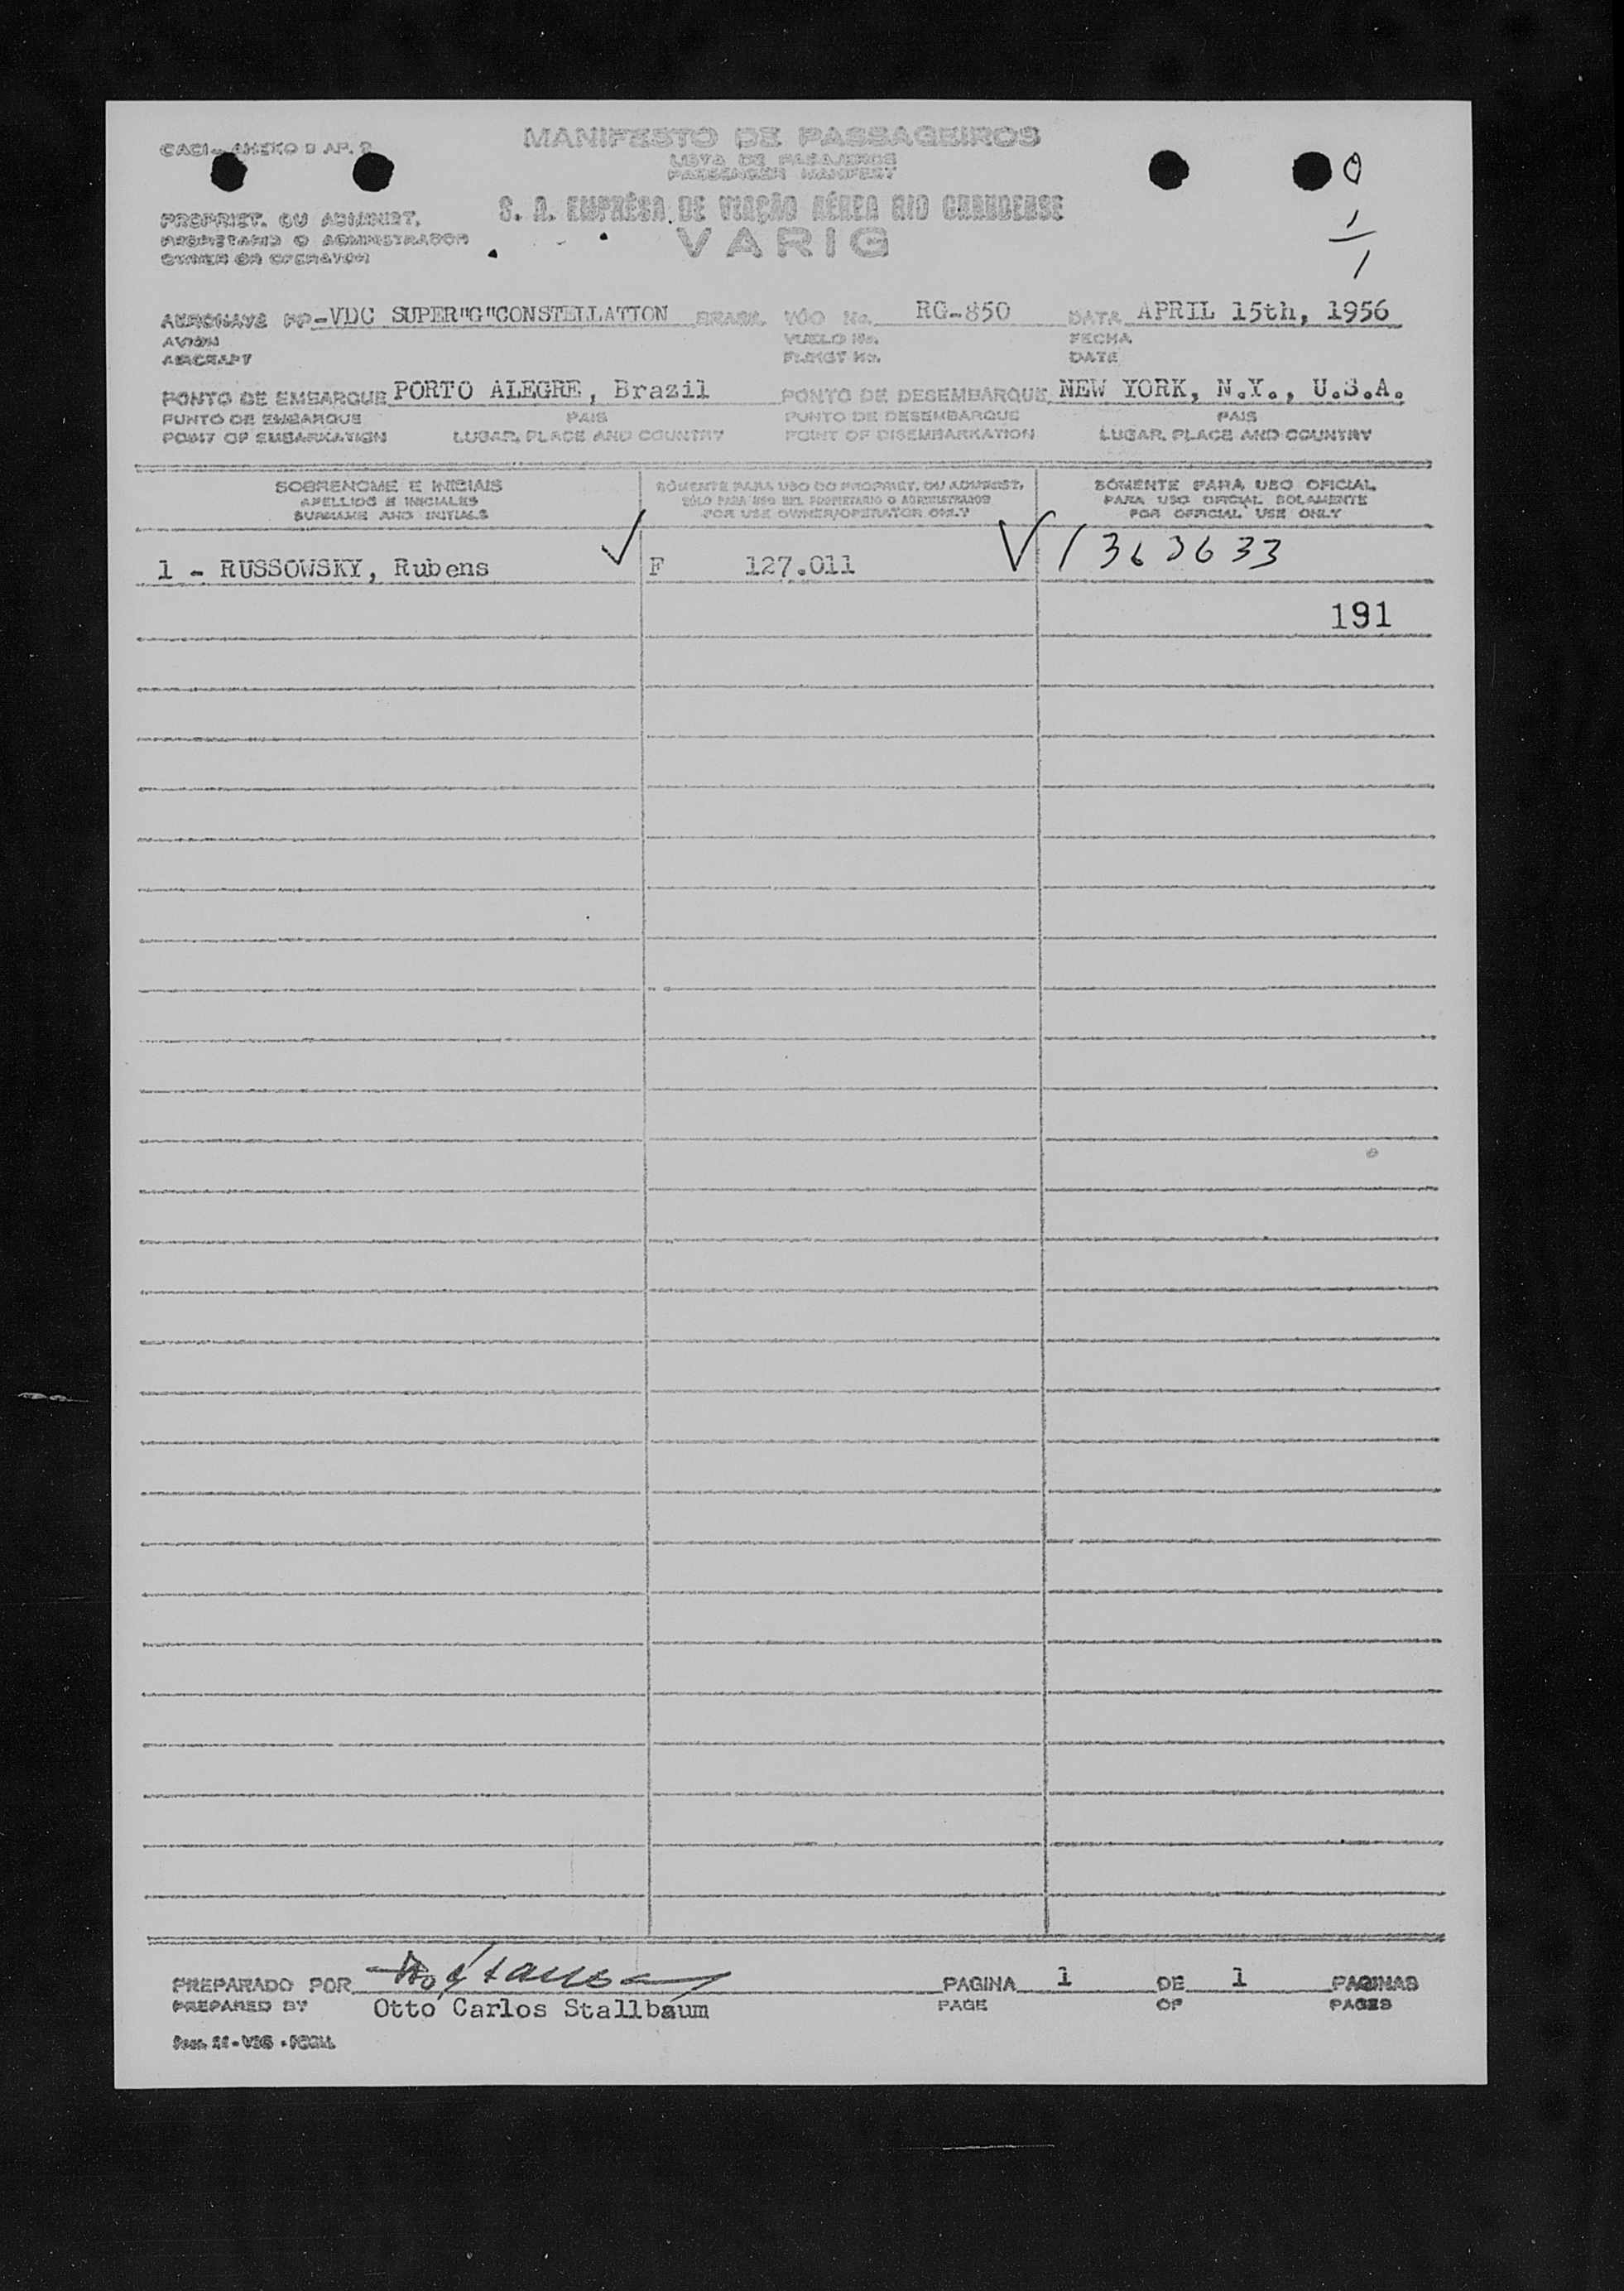 CACI - ANEXO 9 AP. 2
MANIFESTO DE PASSAGEIROS
LISTA DE PASAJEROS
PASSENGER MANIFEST
0
1
1
PROPRIET. OU ADMINIST.
PROPIETARIO O ADMINISTRADOR
OWNER OR OPERATOR
S. A. EMPRÊSA DE VIAÇÃO AÉREA RIO GRANDENSE
VARIG
AERONAVE PP-VDC SUPER"G"CONSTELLATION BRASIL VÔO No. RG-850 DATA APRIL 15th, 1956
AVION VUELO No. FECHA
AIRCRAFT FLIHGT No. DATE
PONTO DE EMBARQUE PORTO ALEGRE, Brazil PONTO DE DESEMBARQUE NEW YORK, N.Y., U.S.A.
PUNTO DE EMBARQUE PAIS PUNTO DE DESEMBARQUE PAIS
POINT OF EMBARKATION LUGAR, PLACE AND COUNTRY POINT OF DISEMBARKATION LUGAR, PLACE AND COUNTRY
SOBRENOME E INICIAIS SÒMENTE PARA USO DO PROPRIET. OU ADMINIST. SÒMENTE PARA USO OFICIAL
APELLIDO E INICIALES SÓLO PARA USO DEL PROPIETARIO O ADMINISTRADOR PARA USO OFICIAL SOLAMENTE
SURNAME AND INITIALS FOR USE OWNER/OPERATOR ONLY FOR OFFICIAL USE ONLY
1 - RUSSOWSKY, Rubens ✓ F 127.011 ✓ 1363633
191
PREPARADO POR PAGINA 1 DE 1 PAGINAS
PREPARED BY Otto Carlos Stallbaum PAGE OF PAGES